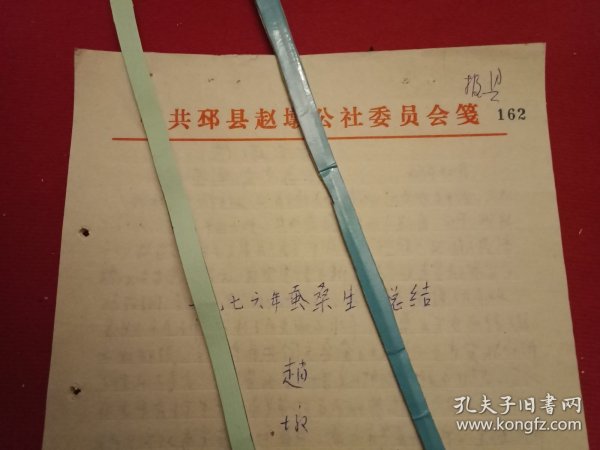 报县
共邳县赵墩公社委员会笺 162
一九七六年蚕桑生 总结
赵
墩
孔夫子旧书网
www.kongfz.com